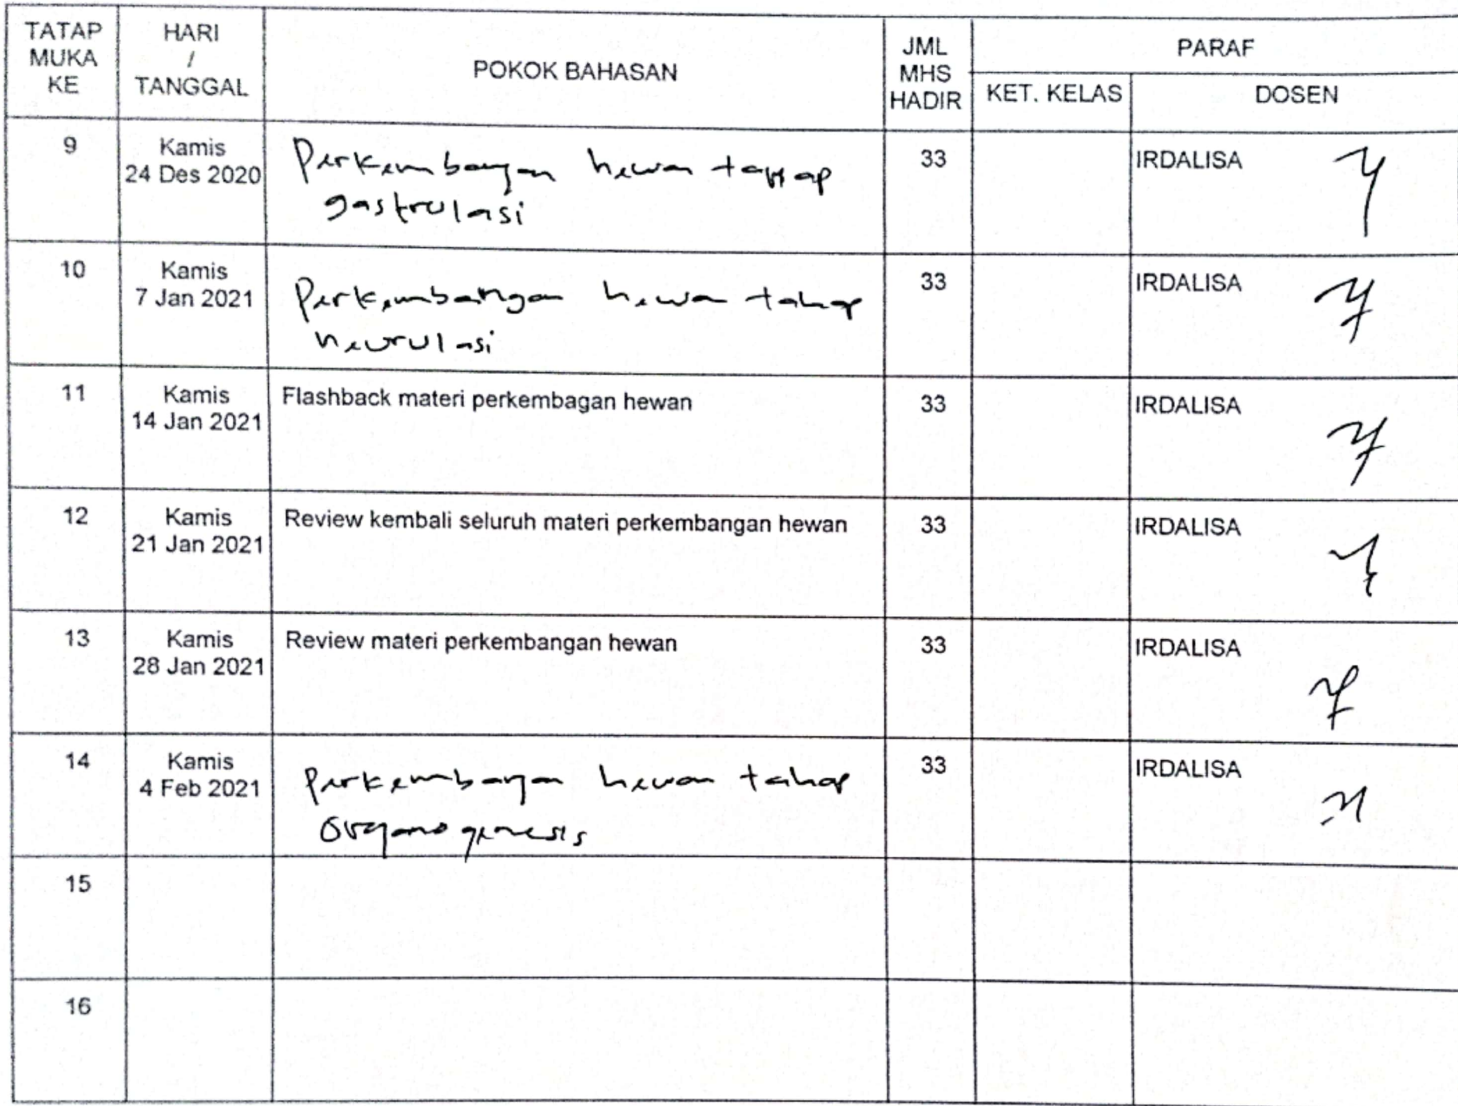 TATAP MUKA KE
HARI / TANGGAL
POKOK BAHASAN
JML MHS HADIR
PARAF
KET. KELAS
DOSEN
9
Kamis
24 Des 2020
Perkembangan hewan tahap
gastrulasi
33
IRDALISA
10
Kamis
7 Jan 2021
Perkembangan hewan tahap
neurulasi
33
IRDALISA
11
Kamis
14 Jan 2021
Flashback materi perkembagan hewan
33
IRDALISA
12
Kamis
21 Jan 2021
Review kembali seluruh materi perkembangan hewan
33
IRDALISA
13
Kamis
28 Jan 2021
Review materi perkembangan hewan
33
IRDALISA
14
Kamis
4 Feb 2021
Perkembangan hewan tahap
organogenesis
33
IRDALISA
15
16